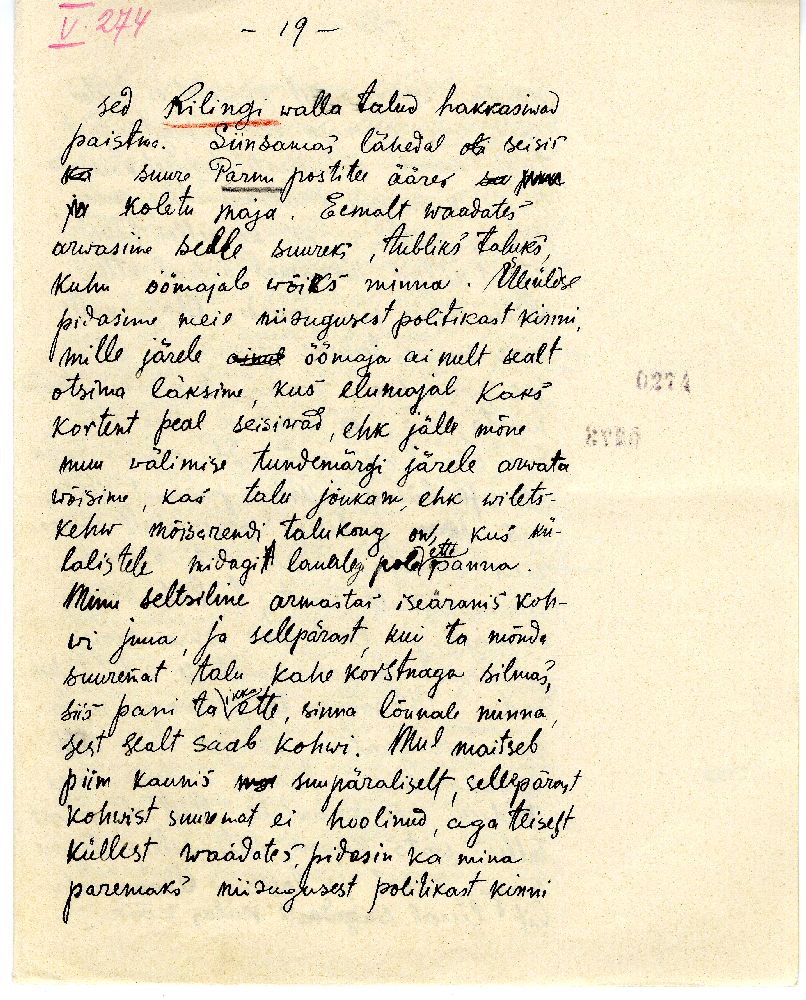 V. 274
- 19 -
sed Kilingi walla talud hakkasiwad
paistma. Siinsamas lähedal seisis
suure Pärnu postitee ääres
koletu maja. Eemalt waadates
arwasime selle suureks, tubliks taluks,
kuhu öömajale wõiks minna. Üleüldse
pidasime meie niisugusest politikast kinni,
mille järele öömaja ainult sealt
otsima läksime, kus elumajal kaks
kortent peal seisiwad, ehk jälle mõne
muu wälimise tundemärgi järele arwata
wõisime, kas talu jõukam, ehk wilets-
kehw mõisarendi talukong on, kus kü-
lalistele midagit lauale ette panna.
Minu seltsiline armastas iseäranis koh-
wi juua, ja sellepärast, kui ta mõnda
suuremat talu kahe korstnaga silmas,
siis pani ta ikka ette, sinna lõunale minna,
sest sealt saab kohwi. Mul maitseb
piim kaunis suupäraliselt, sellepärast
kohwist suuremat ei hoolinud, aga teisest
küllest waadates, pidasin ka mina
paremaks niisugusest politikast kinni
0274